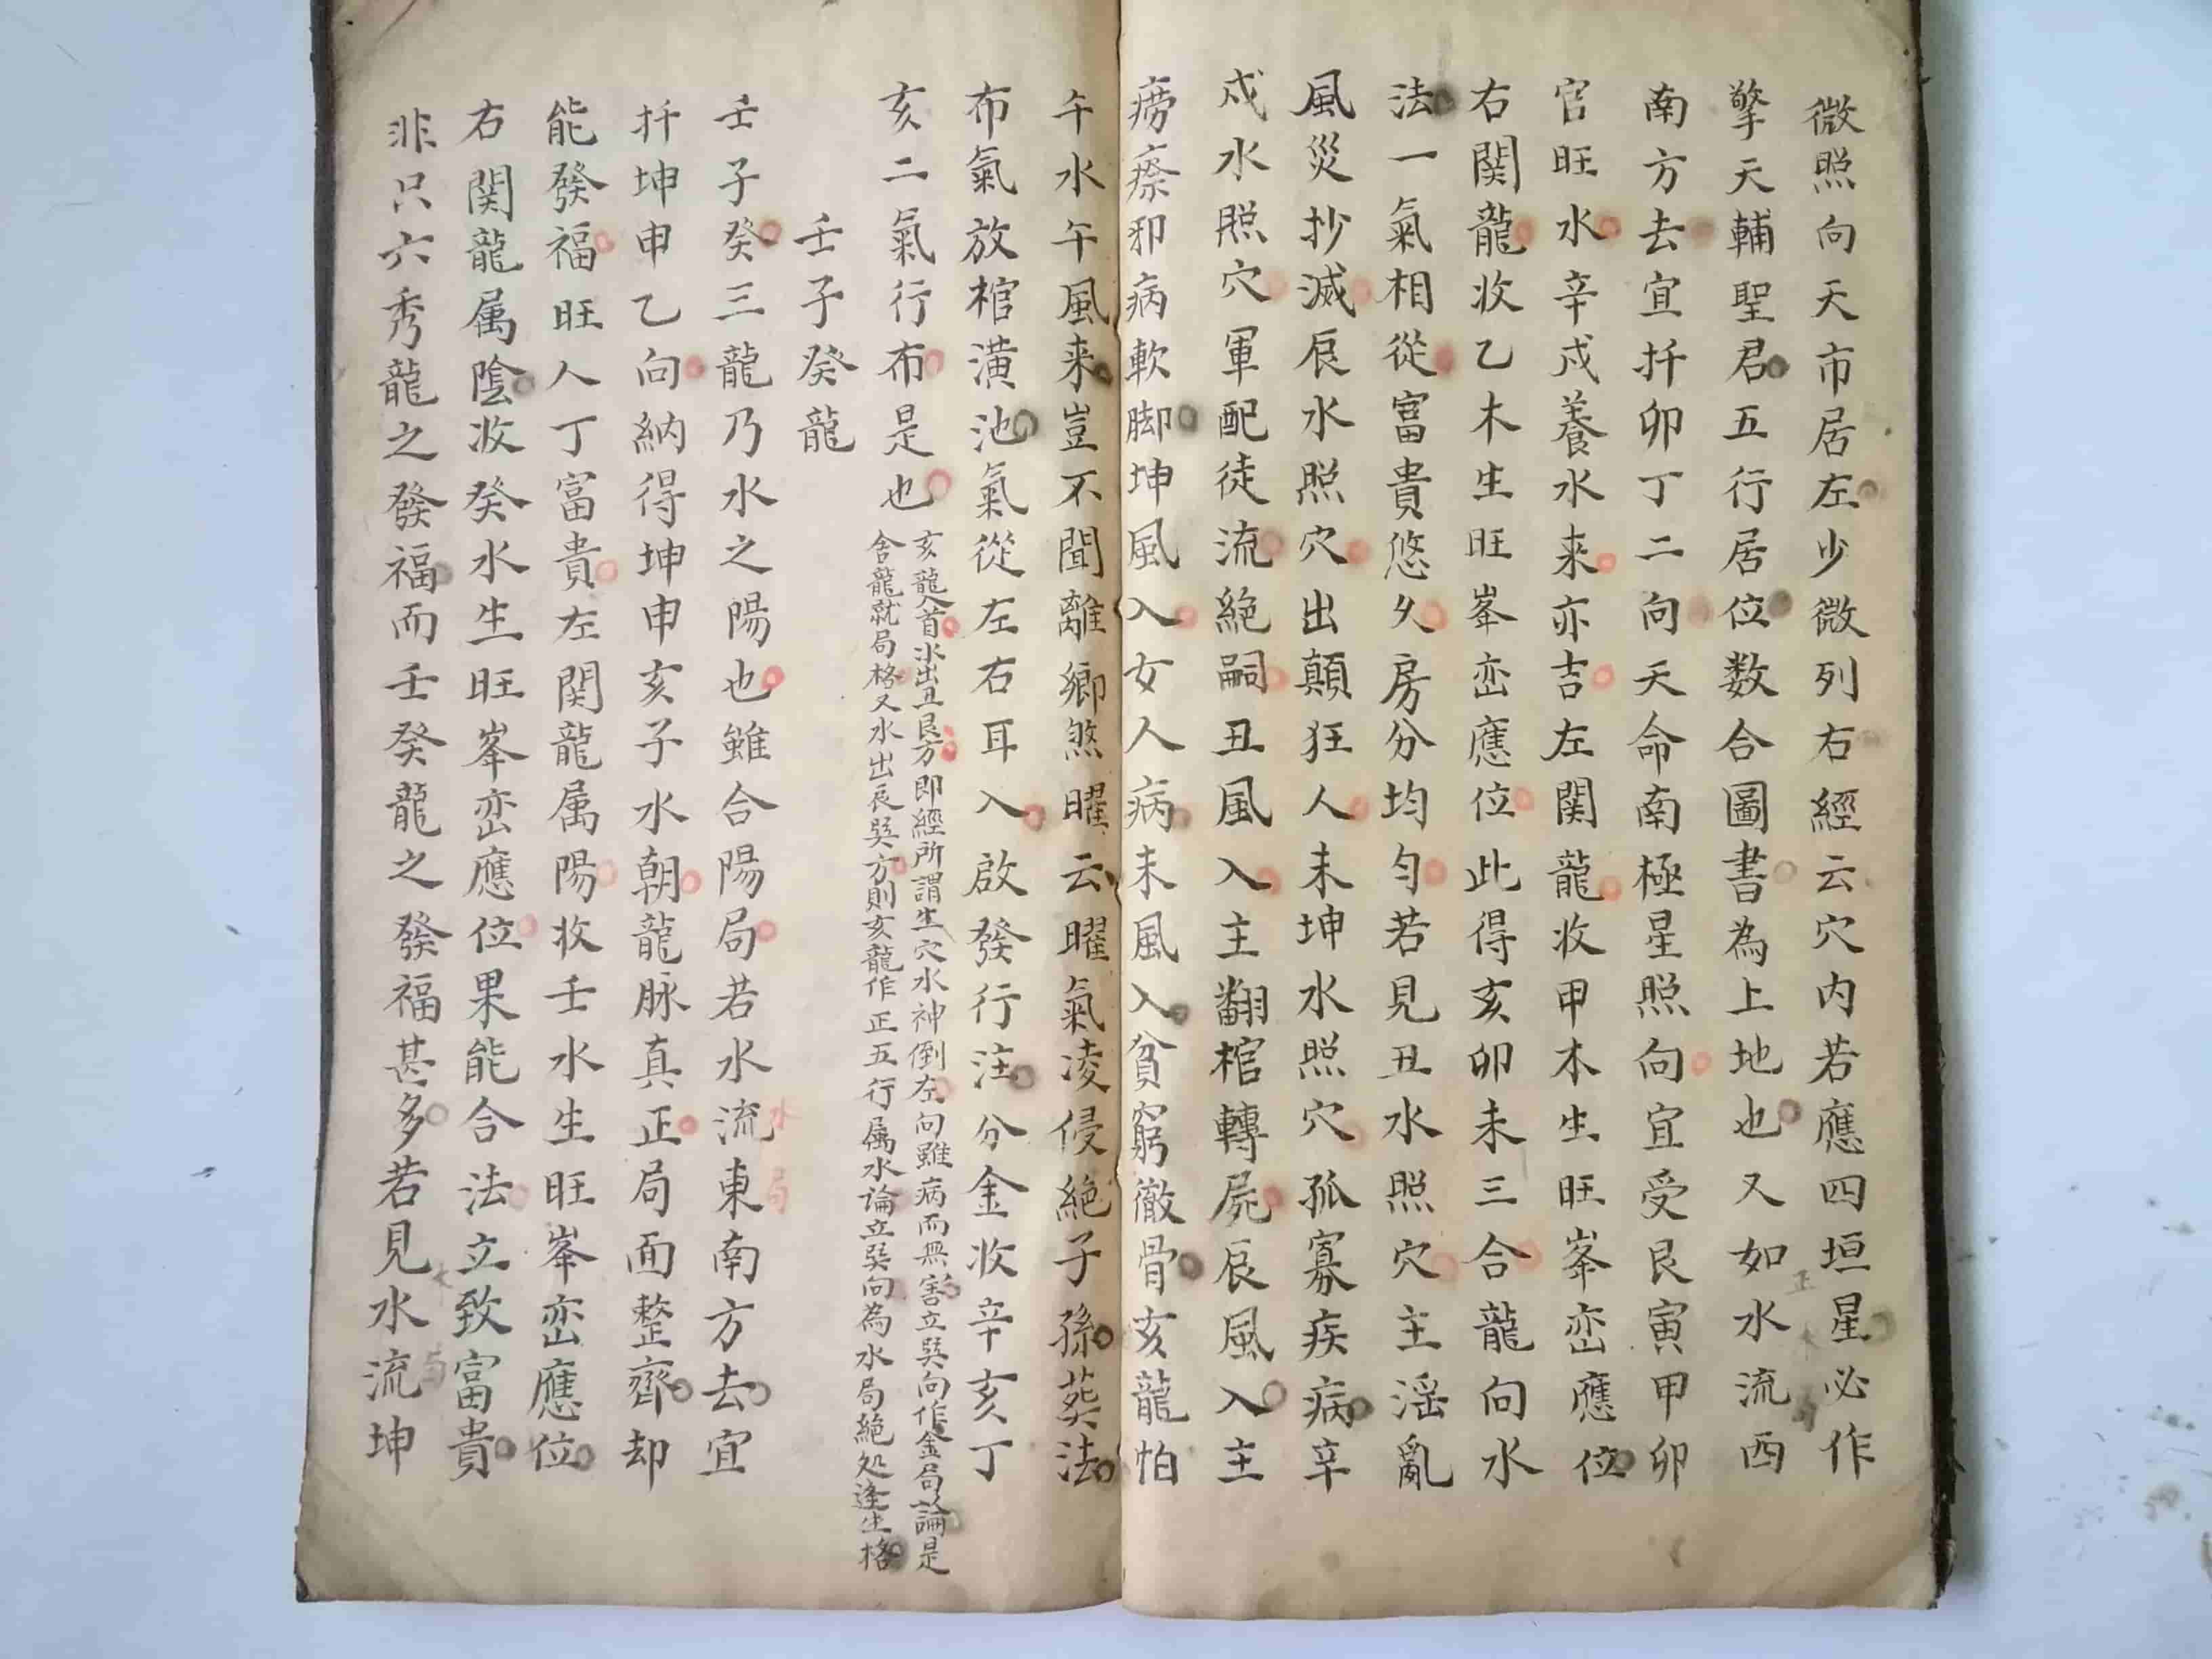 微照向天市居左少微列右經云穴内若應四垣星必作
擎天輔聖君五行居位数合圖書為上地也又如水流西
南方去宜扦卯丁二向天命南極星照向宜受艮寅甲卯
官旺水辛戌養水来亦吉左関龍收甲木生旺峯巒應位
右関龍收乙木生旺峯巒應位此得亥卯未三合龍向水
法一氣相從富貴悠久房分均匀若見丑水照穴主淫亂
風災抄滅辰水照穴出顛狂人未坤水照穴孤寡疾病辛
戌水照穴軍配徒流絕嗣丑風入主翻棺轉屍辰風入主
癆瘵邪病軟脚坤風入女人病未風入貧窮徹骨亥龍怕
午水午風来豈不聞離鄉煞曜云曜氣凌侵絕子孫葬法
布氣放棺潢池氣從左右耳入啟發行注分金收辛亥丁
亥二氣行布是也
亥龍入首水出丑艮方即經所謂生穴水神倒左向雖病而無害立巽向作金局論是
舍龍就局格又水出辰巽方則亥龍作正五行属水論立巽向為水局絕処逢生格
壬子癸龍
壬子癸三龍乃水之陽也雖合陽局若水流東南方去宜
水局
扦坤申乙向納得坤申亥子水朝龍脉真正局面整齊却
能發福旺人丁富貴左関龍属陽收壬水生旺峯巒應位
右関龍属陰收癸水生旺峯巒應位果能合法立致富貴
非只六秀龍之發福而壬癸龍之發福甚多若見水流坤